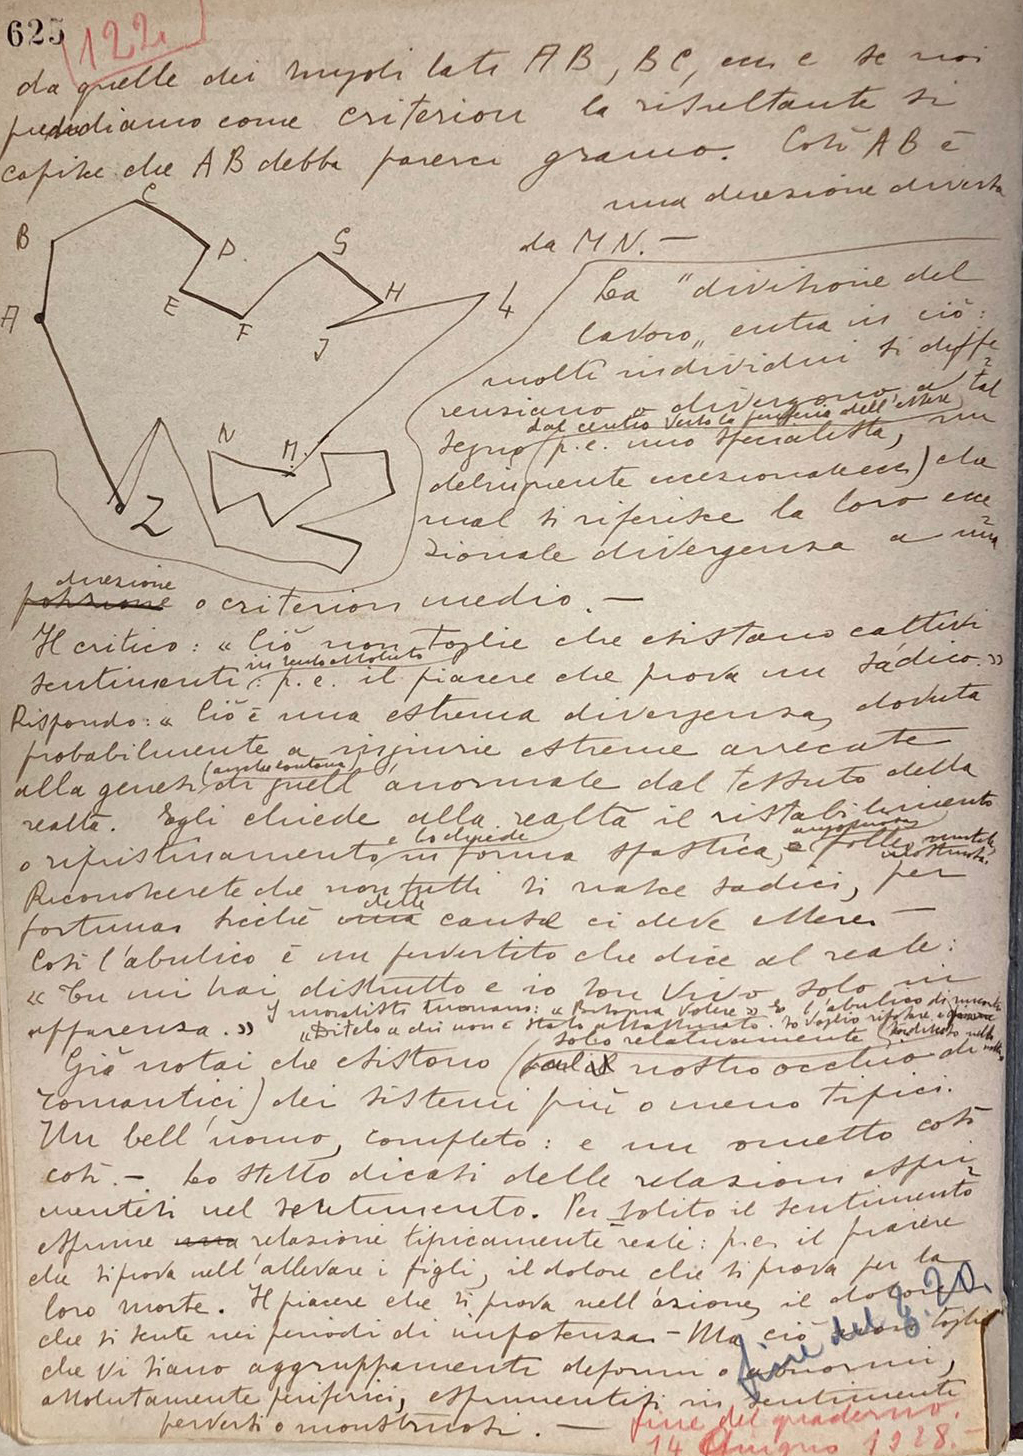 625
122
da quelle dei singoli lati AB, BC, ecc e se noi
prendiamo come criterion la risultante si
capisce che AB debba parerci gramo. Così AB è
una direzione diversa
da MN. —
B
C
D.
A
E
F
G
H
J
L
N
M.
Z
La "divisione del
lavoro" entra in ciò:
molti individui si diffe=
renziano o divergono a tal
dal centro verso la periferia dell'essere
segno (p.e. uno specialista, un
delinquente eccezionale ecc) che
mal si riferisce la loro ecce=
zionale divergenza a una
direzione
posizione o criterion medio. —
Il critico: « Ciò non toglie che esistano cattivi
in senso assoluto
sentimenti: p.e. il piacere che prova un sádico.»
Rispondo: « Ciò è una estrema divergenza, dovuta
probabilmente a ingiurie estreme arrecate
(anche lontana)
alla genesi di quell'anormale dal tessuto della
realtà. Egli chiede alla realtà il ristabilimento
e lo chiede
o ripristinamento in forma spastica, e folle,
mostruosa.
Riconoscerete che non tutti si nasce sadici, per
delle
fortuna: sicché una cause ci deve essere. —
Così l'abulico è un pervertito che dice al reale:
« Tu mi hai distrutto e io son vivo solo in
apparenza.»
I moralisti tuonano: « Bisogna volere » E l'abulico di
«Ditelo a chi non è stato
solo relativamente
Già notai che esistono (pel nostro occhio di
romantici) dei sistemi più o meno tipici.
Un bell'uomo, completo: e un ometto così
così. — Lo stesso dicasi delle relazioni espri=
mentisi nel sentimento. Per solito il sentimento
esprime una relazione tipicamente reale: p.e. il piacere
che si prova nell'allevare i figli, il dolore che si prova per la
loro morte. Il piacere che si prova nell'azione, il dolore
che si sente nei periodi di impotenza. — Ma ciò non toglie
che vi siano aggruppamenti deformi o abnormi,
assolutamente periferici, esprimentisi in sentimenti
perversi o mostruosi. —
fine del g. 20.
fine del quaderno.
14 Giugno 1928. —